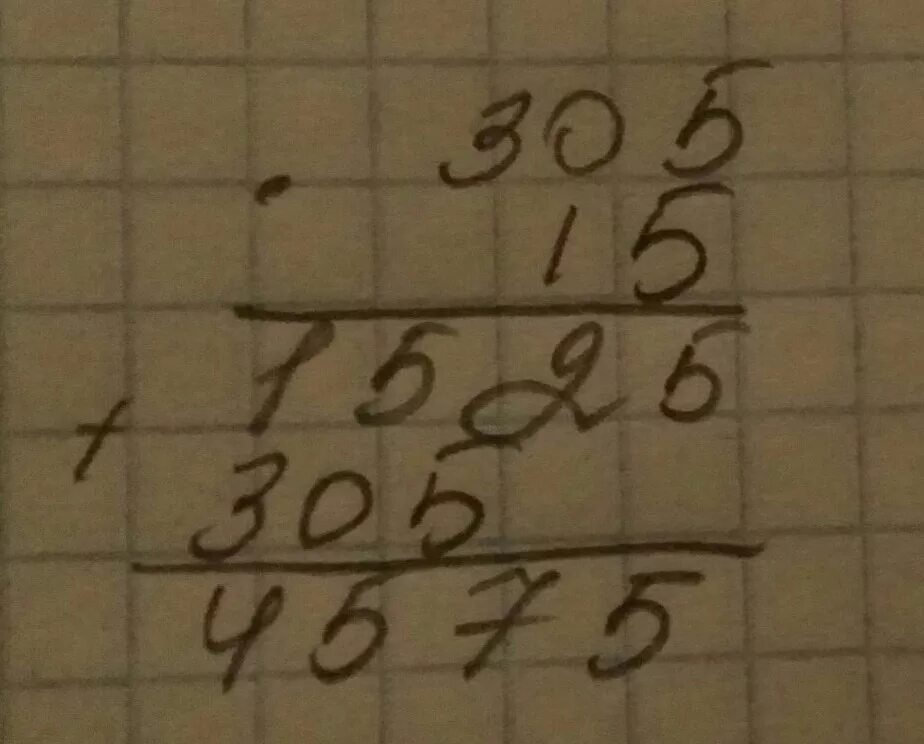 305
· 15
1525
+ 305
4575